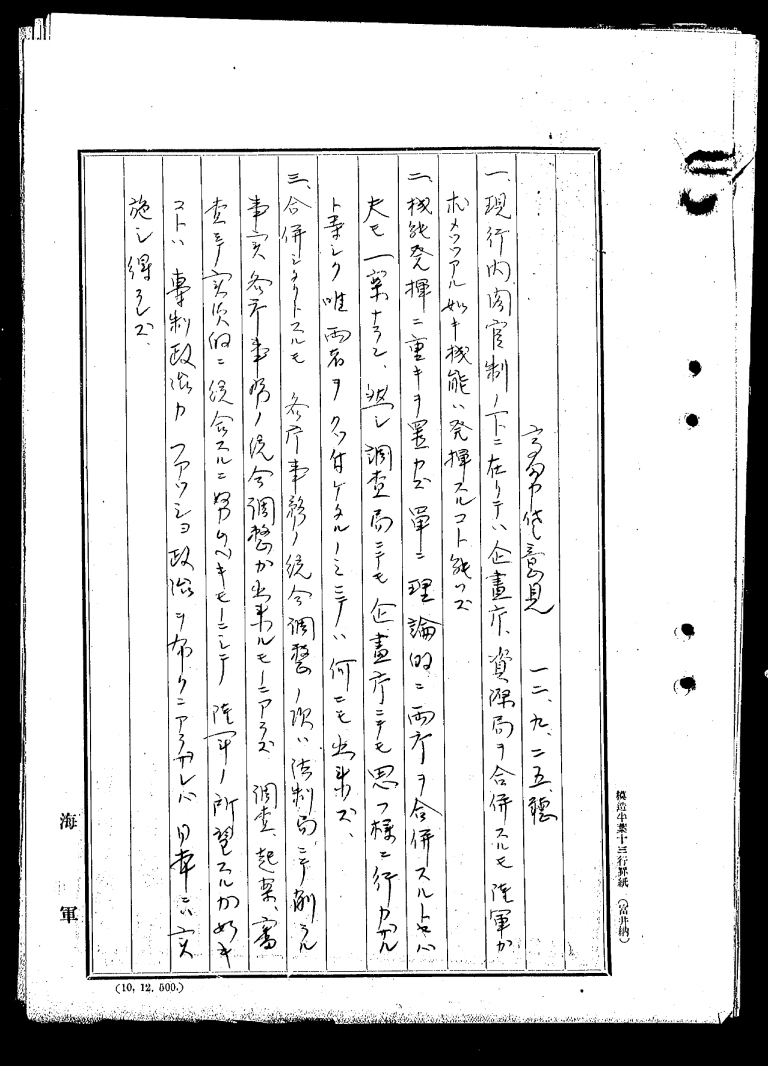 意見　一二、九、二五、聴
一、現行内閣官制ノ下ニ在リテハ企画庁、資源局ヲ合併スルモ陸軍カ
求メツツアル如キ機能ハ発揮スルコト能ハズ
二、機能発揮ニ重キヲ置カズ単ニ理論的ニ両庁ヲ合併スルトセバ
夫モ一案ナラン、然シ調査局ニテモ企画庁ニテモ思フ様ニ行カザル
ト等シク唯両者ヲクッ付ケタルノミニテハ何ニモ出来ズ、
三、合併シタリトスルモ各庁事務ノ統合調整ノ項ハ法制局ニテ削ラル
事実各庁事務ノ統合調整カ出来ルモノニアラズ　調査、起案、審
査等ヲ実質的ニ統合スルニ努ムベキモノニシテ陸軍ノ所望スルカ如キ
コトハ専制政治カファッショ政治ヲ布クニアラザレバ日本ニハ実
施シ得ラレズ、
模造半葉十三行罫紙　（富井納）
海軍
(10, 12, 500.)